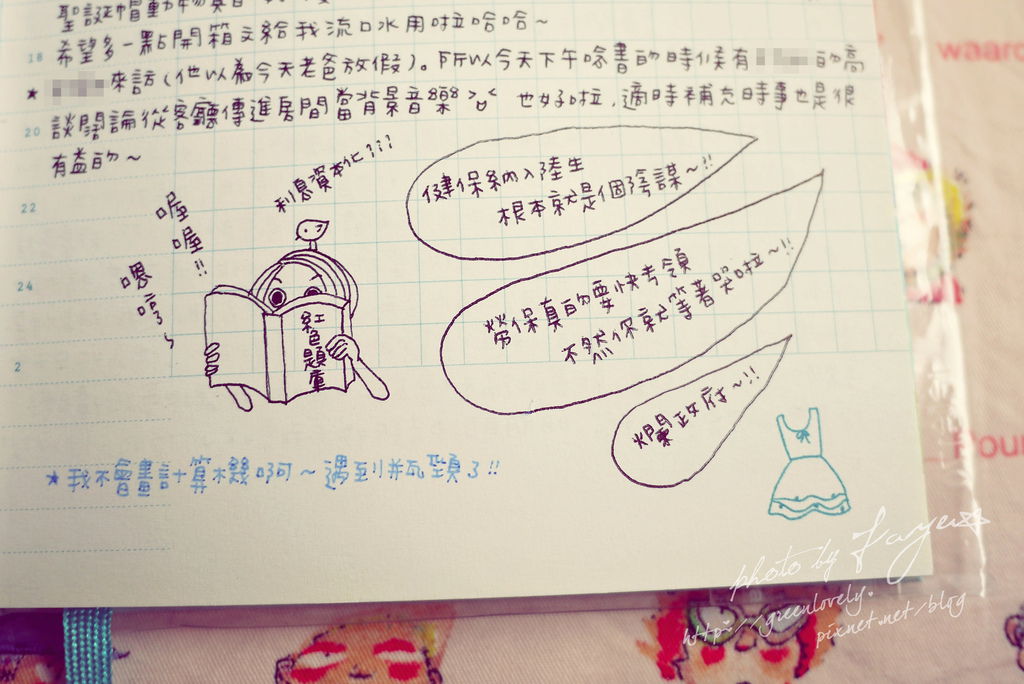 聖誕帽動物
18 希望多一點開箱文給我流口水用啦哈哈~
★ 來訪(他以為今天老爸放假)。所以今天下午唸書的時候有 的高
20 談闊論從客廳傳進房間當背景音樂 也好啦,適時補充時事也是很
有益的~
22
24
2
利息資本化???
喔
喔!!
嗯
哼~
紅色題庫
健保納入陸生
根本就是個陰謀~!!
勞保真的要快考領
不然保就等著哭啦~!!
爛政府~!!
★我不會畫計算機啊~遇到瓶頸了!!
photo by Faye
http://greenlovely.
pixnet.net/blog
waard